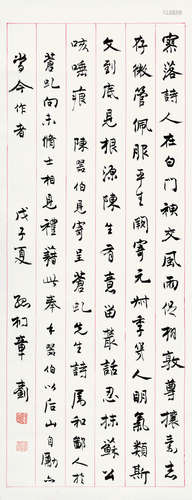 寥落詩人在白門神交風雨儘相敦尊攘意志
存微管佩服平生闕寄元卅季幾人明氣類斯
文到底見根源陳生有意留叢話忍抹蘇公
咳唾痕 陳器伯見寄呈蒼虬先生詩屬和鄙人於
蒼虬向未修士相見禮藉此奉卡器伯以后山自勵
當今作者 戊子夏 孤桐章